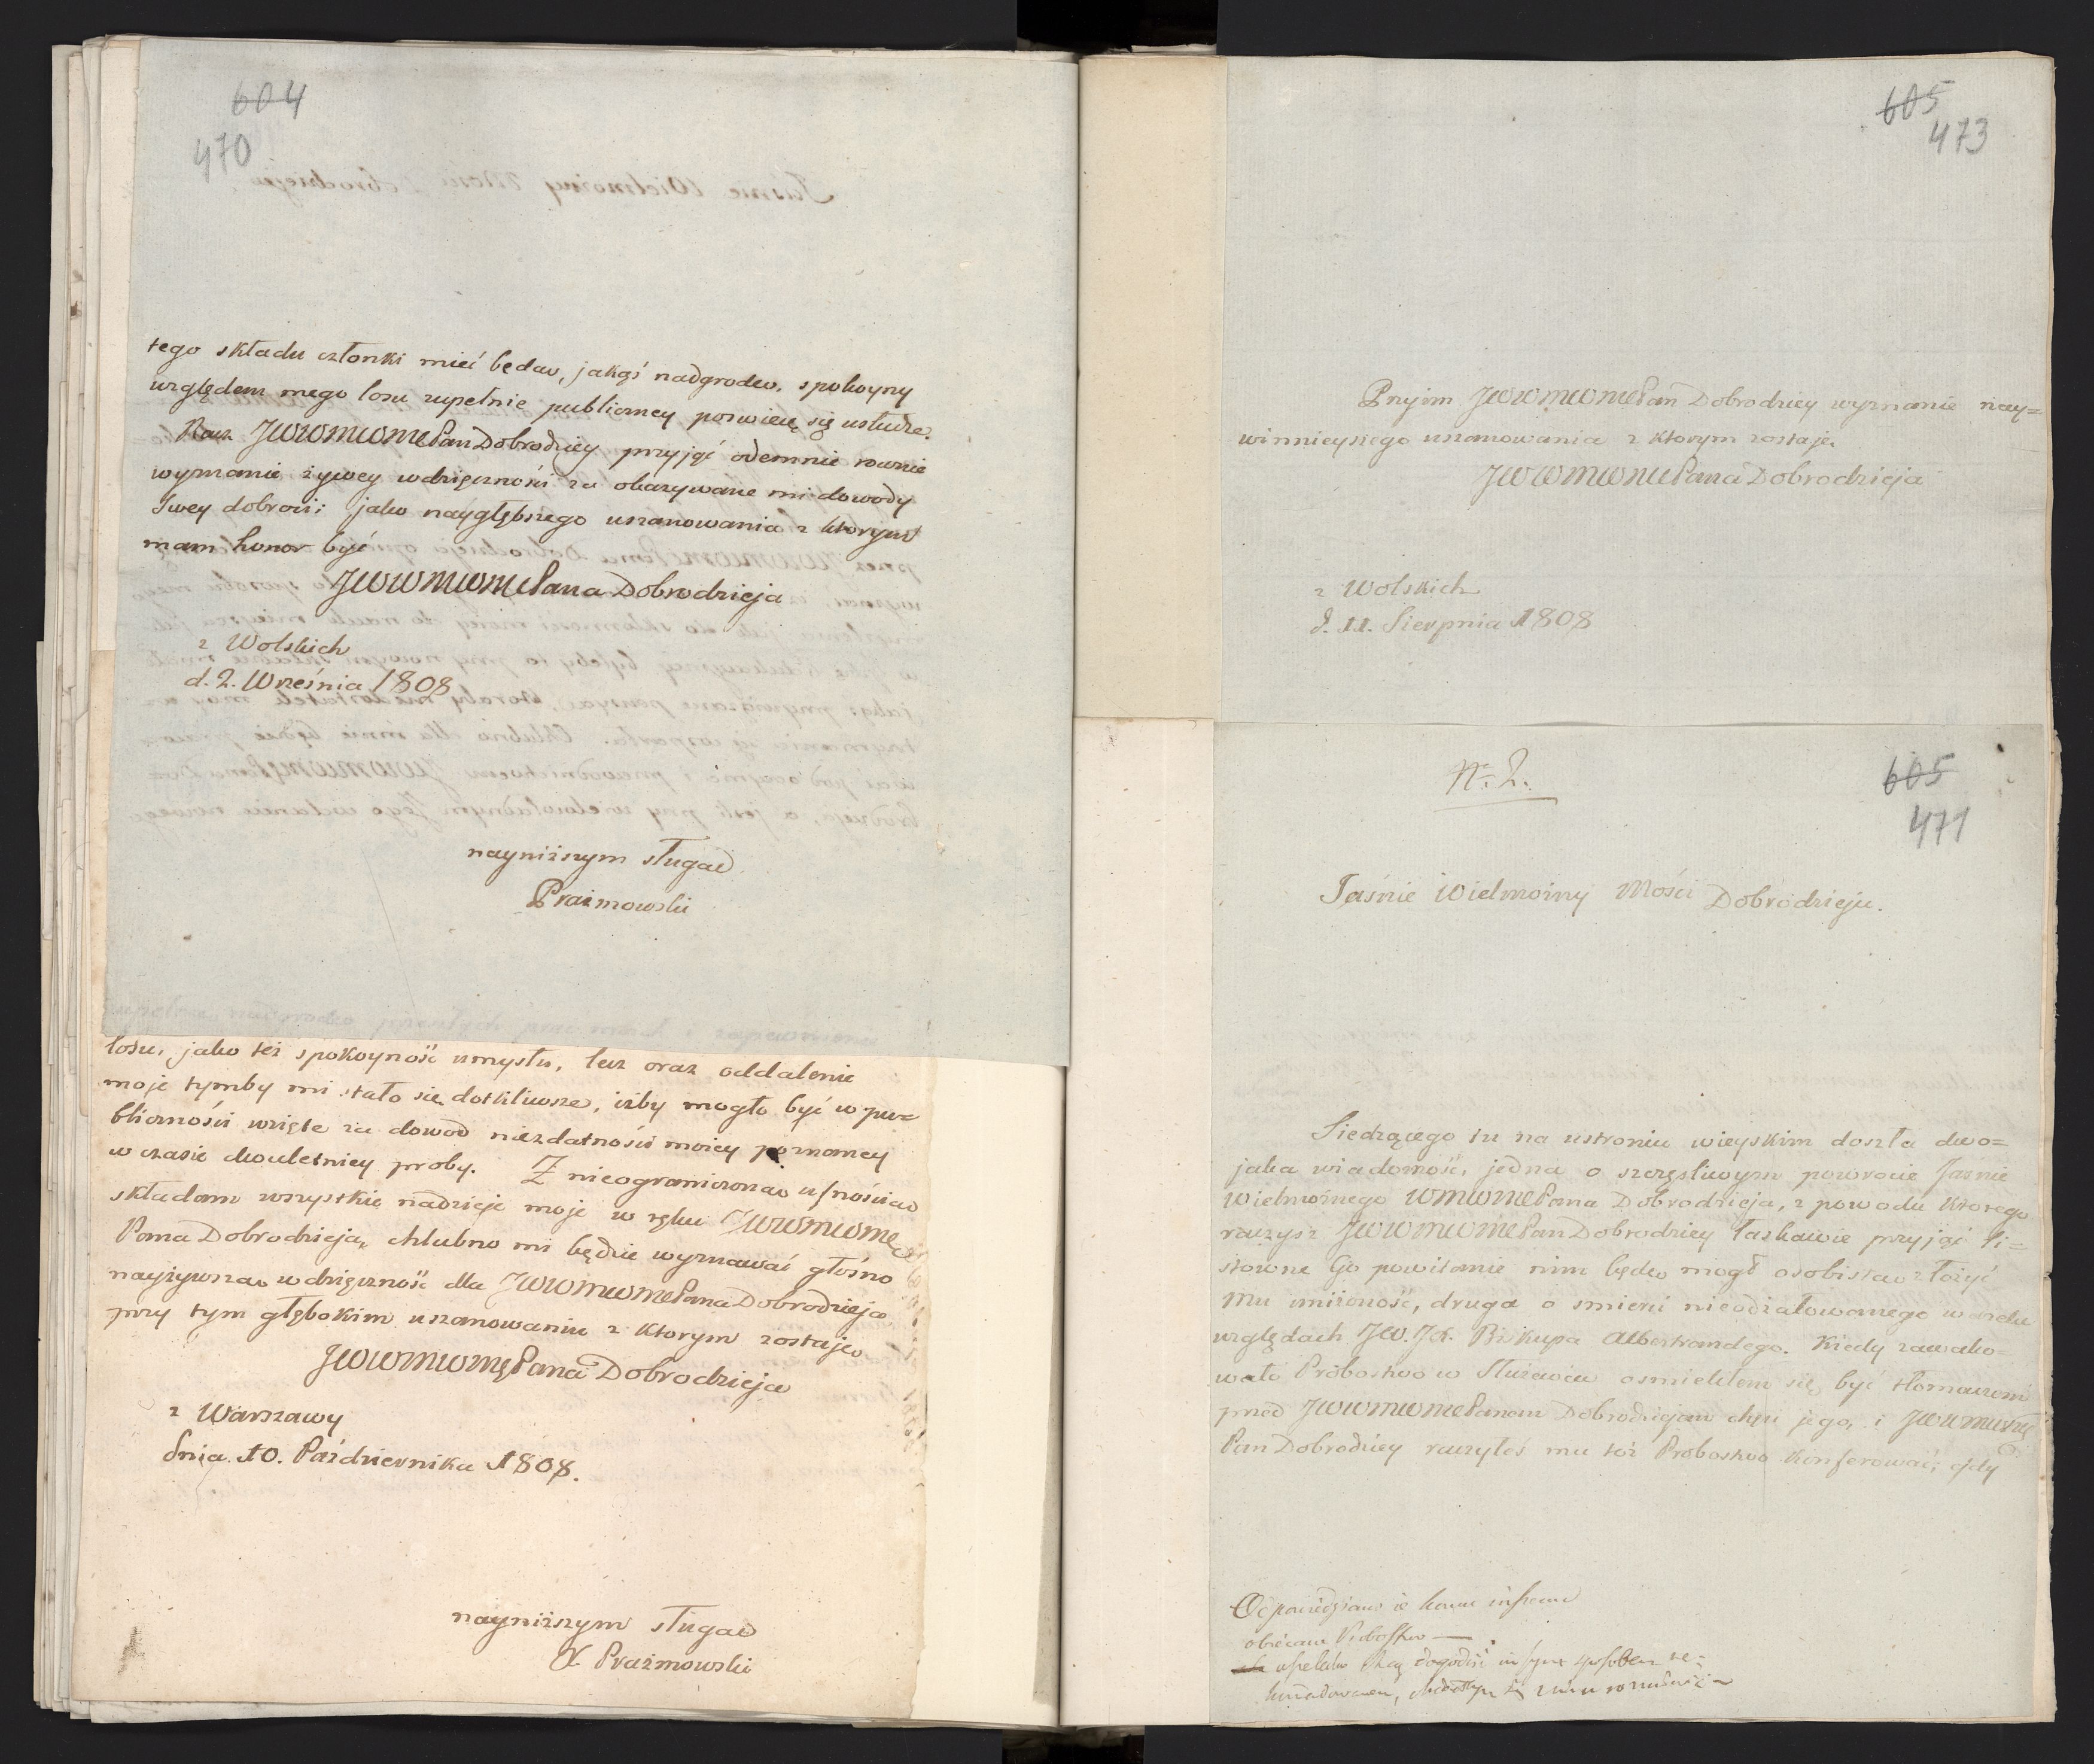 604
470
tego składu członki mieć będą, jakąś nadgrodę. spokoyny
względem mego losu zupełnie publiczney poswięcę się usłudze.
Racz JWWMWMPan Dobrodziey przyjąć odemnie rownie
wyznanie żywey wdzięczności za okazywane mi dowody
Twey dobroci; jako naygłębszego uszanowania z ktorym
mam honor być
JWWMWMPana Dobrodzieja
z Wolskich
d. 2. Września 1808
nayniższym sługą
Prażmowski
losu, jako też spokoyność umysłu, lecz oraz oddalenie
moje tymby mi stało się dotkliwsze, iżby mogło być w pu=
bliczności wzięte za dowod niezdatności moiey poznaney
w czasie dwuletniey proby. Z nieograniczoną ufnością
składam wszystkie nadzieje moje w ręku JWWMWM
Pana Dobrodzieja, chlubno mi będzie wyznawać głośno
nayżywszą wdzięczność dla JWWMWMPana Dobrodzieja
przy tym głębokim uszanowaniu z ktorym zostaję
JWWMWMPana Dobrodzieja
z Warszawy
dnia 10. Października 1808.
nayniższym sługą
X. Prażmowski
605
473
Przyim JWWMWMPan Dobrodziey wyznanie nay=
winnieyszego uszanowania z ktorym zostaję
JWWMWMPana Dobrodzieja
z Wolskich
d. 11. Sierpnia 1808
N. 2.
605
471
Jaśnie Wielmożny Mości Dobrodzieju.
Siedzącego tu na ustroniu wieyskim doszła dwo=
jaka wiadomość, jedna o szczęśliwym powrocie Jaśnie
Wielmożnego WMWMPana Dobrodzieja, z powodu ktorego
raczysz JWWMWMPan Dobrodziey łaskawie przyjąć li=
stowne Go powitanie nim będę mogł osobistą złożyć
Mu uniżoność, druga o smierci nieodżałowanego w wielu
względach JW. JX. Biskupa Albertrandego. Kiedy zawako=
wało Probostwo w Służewie osmieliłem się być tłomaczem
przed JWWMWMPanem Dobrodziejem chęci jego, i JWWMWM
Pan Dobrodziey raczyłeś mu też Probostwo konferować; gdy
Odpowiedziano iż komu inszemu
obiecane Probostwo —